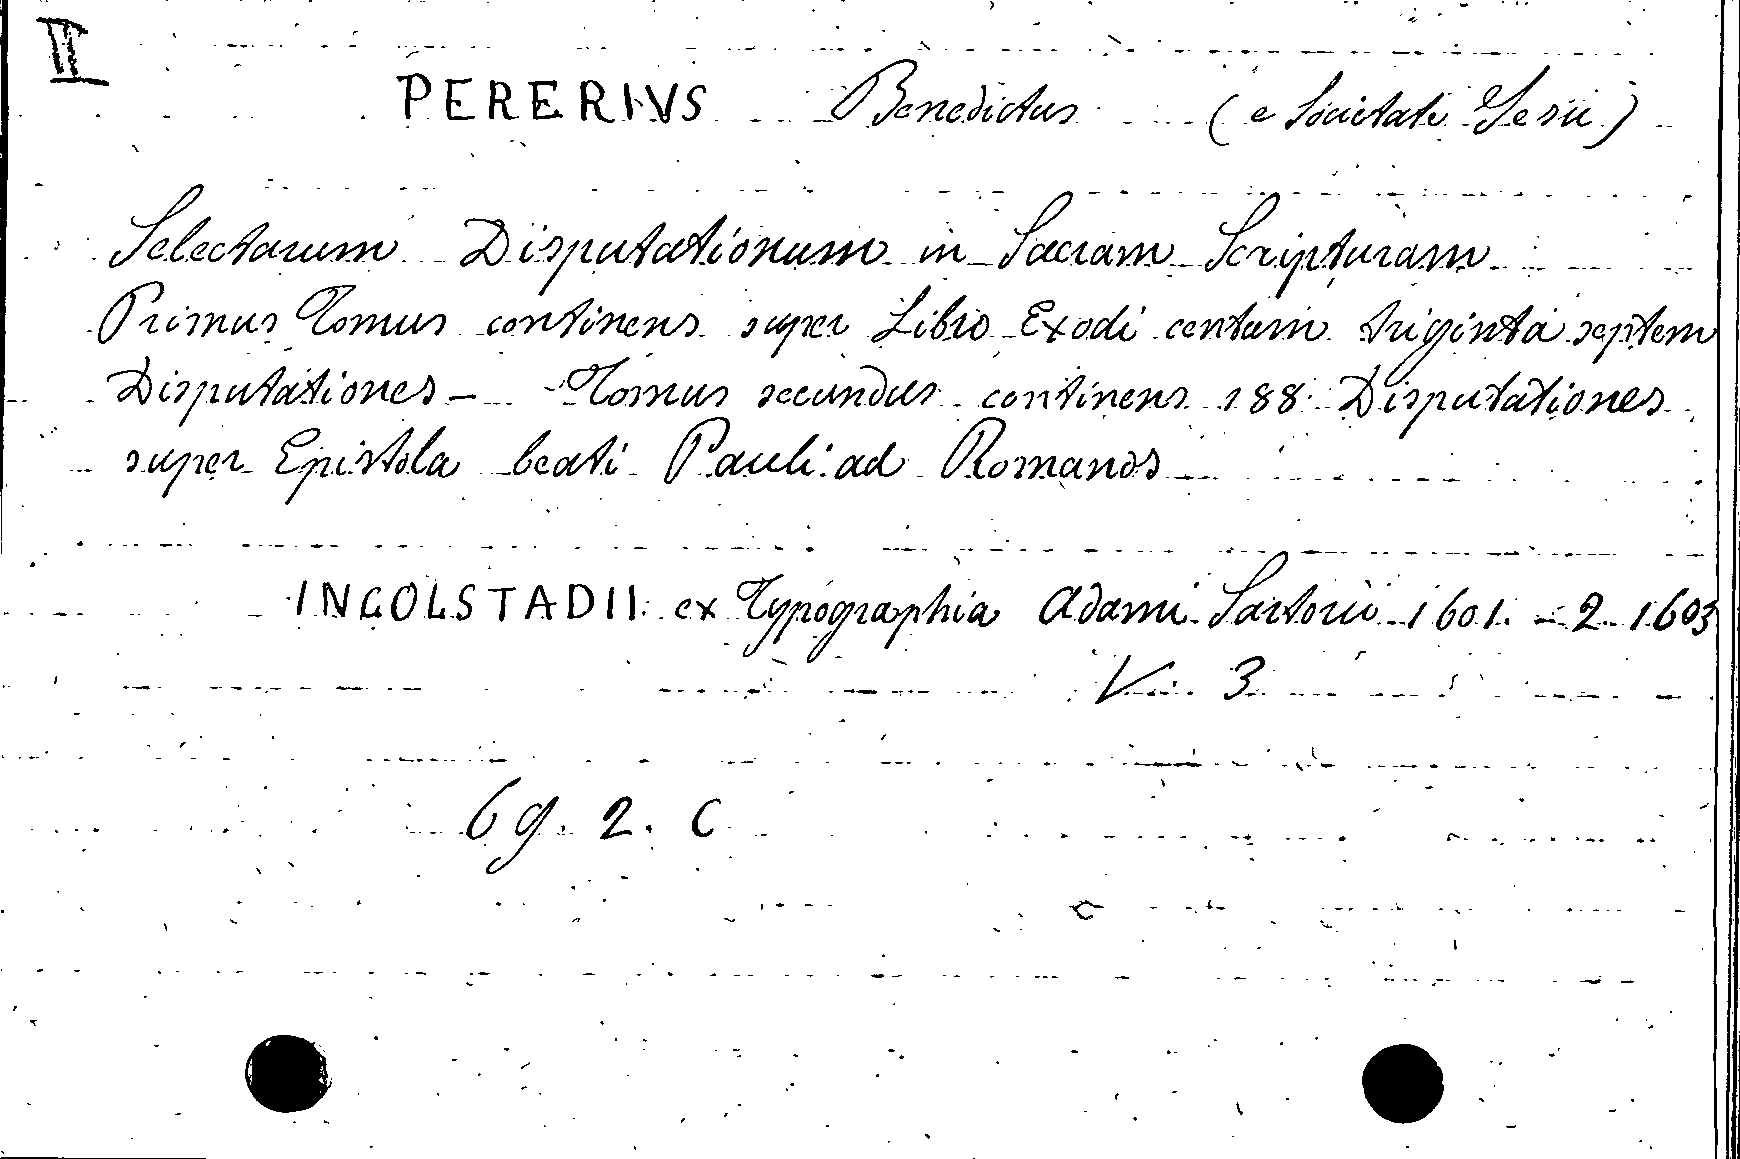 II
PERERIVS Benedictus (e Societati Iesu)
Selectarum Disputationum in Sacram Scripturam
Primus Tomus continens super Libro Exodi centum triginta septem
Disputationes - Tomus secundus continens 188 Disputationes
super Epistola beati Pauli ad Romanos
INGOLSTADII ex Typographia Adami Sartorii 1601. - 2 1603
V. 3
69. 2. C